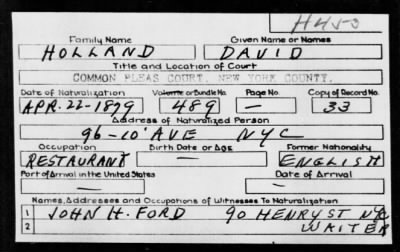 H450
Family Name Given Name or Names
HOLLAND DAVID
Title and Location of Court
COMMON PLEAS COURT, NEW YORK COUNTY.
Date of Naturalization Volume or Bundle No. Page No. Copy of Record No.
APR.-22-1879 489 — 33
Address of Naturalized Person
96-10' AVE NYC
Occupation Birth Date or Age Former Nationality
RESTAURANT — ENGLISH
Port of Arrival in the United States Date of Arrival
— —
Names, Addresses and Occupations of Witnesses To Naturalization
1 JOHN H. FORD 90 HENRY ST NYC
2 WAITER